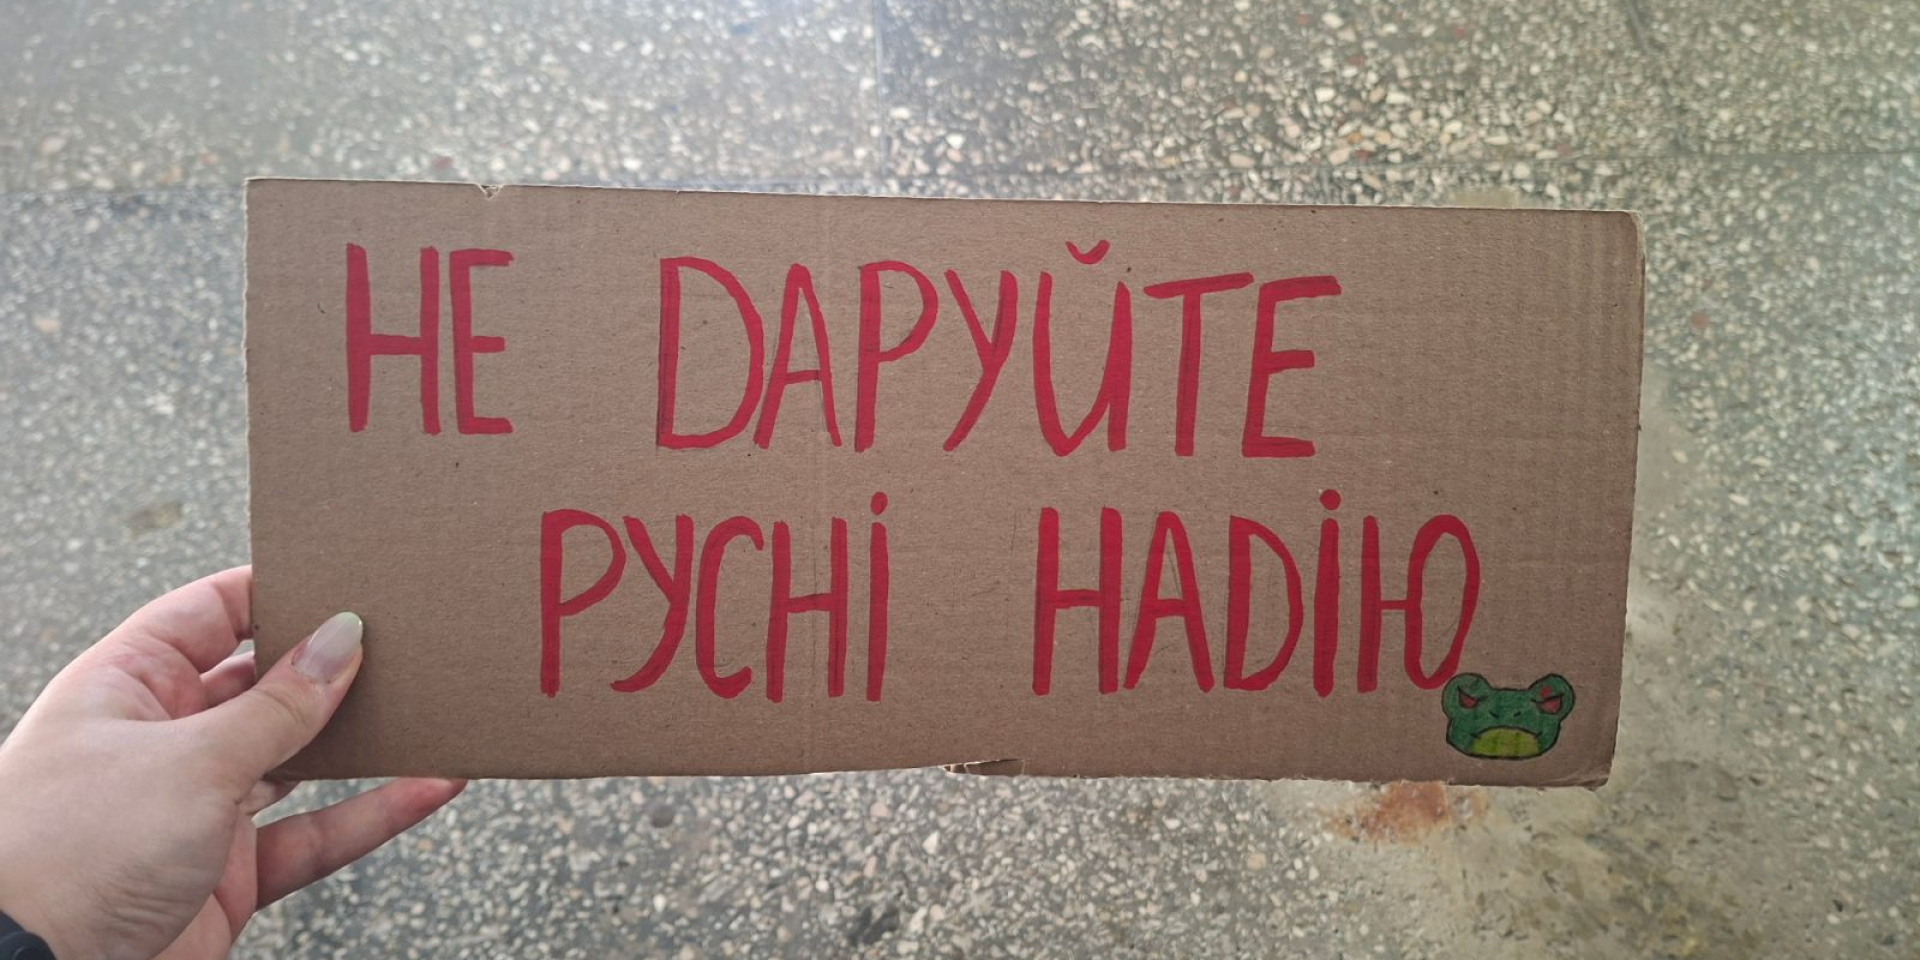 НЕ DАРУЙТЕ
РУСНІ НАDІЮ